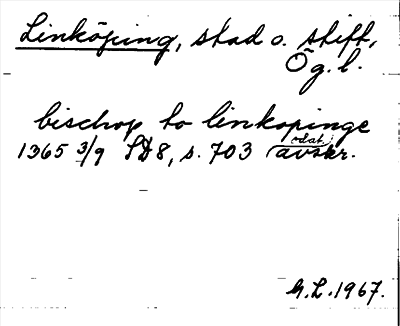 Linköping, stad o. stift,
Ög.l.
bischop to linkopinge
odat.
1365 3/9 SD8, s. 703 (avskr.
G.L. 1967.